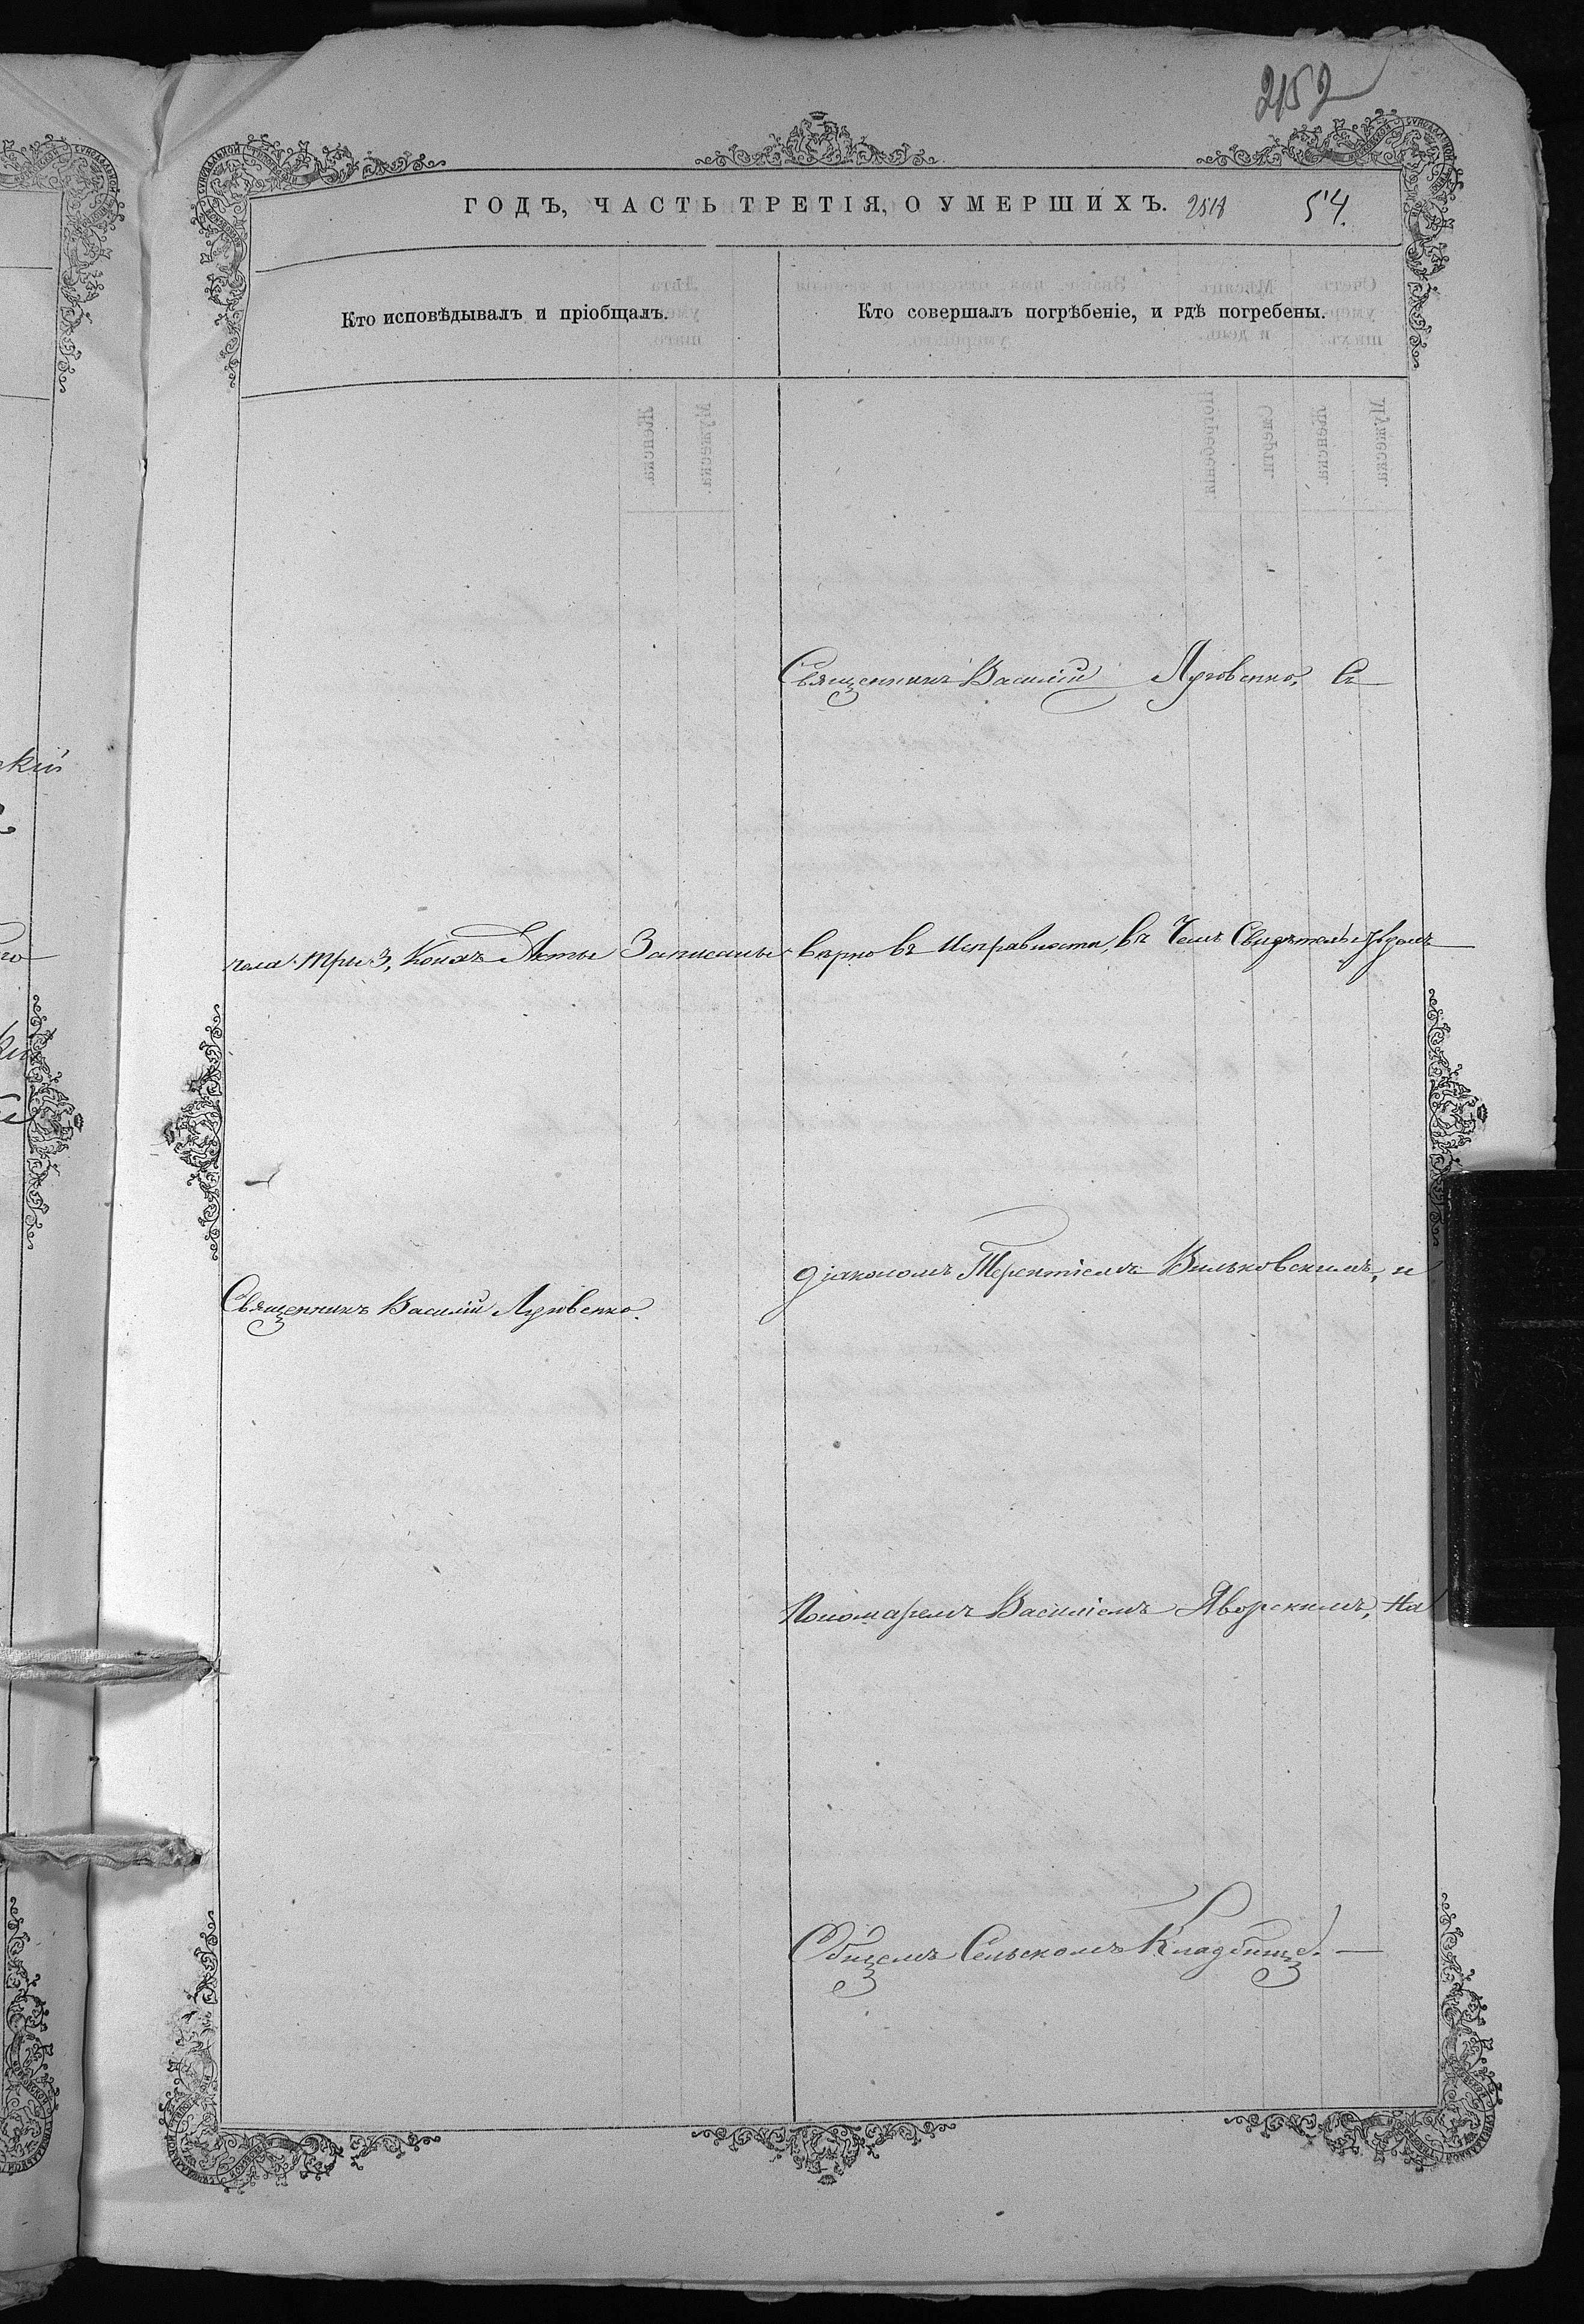 2152
ГОДЪ, ЧАСТЬ ТРЕТІЯ, О УМЕРШИХЪ.
54.
Кто исповѣдывалъ и пріобщалъ.
Кто совершалъ погрѣбеніе, и гдѣ погребены.
Священникъ Василій Луговенко, съ
пола три 3, коихъ Акты Записаны вѣрно въ Исправности, въ Чемъ Свидѣтельствуемъ
діакономъ Терентіемъ Вильковскимъ, и
Священникъ Василій Луговенко.
Пономаремъ Василіемъ Яворскимъ, на
Общемъ Сельскомъ Кладбищѣ. —